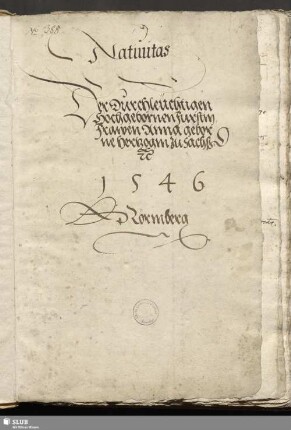 No 368
Natiuitas
Der Durchleuchtigen
Hochgebornen Furstin
Frawen Anna gebor
ne Hertzogin zu Sachssē
1546
Nornberg
SLUB
Wir führen Wissen.